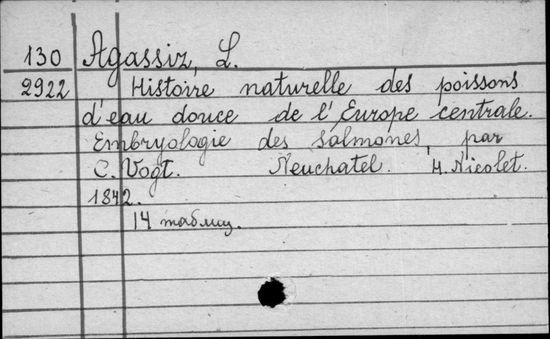 130 Agassiz, L.
2922 Histoire naturelle des poissons
d'eau douce de l'Europe centrale.
Embryologie des Salmones, par
C. Vogt. Neuchatel. H. Nicolet.
1842.
14 таблиц.